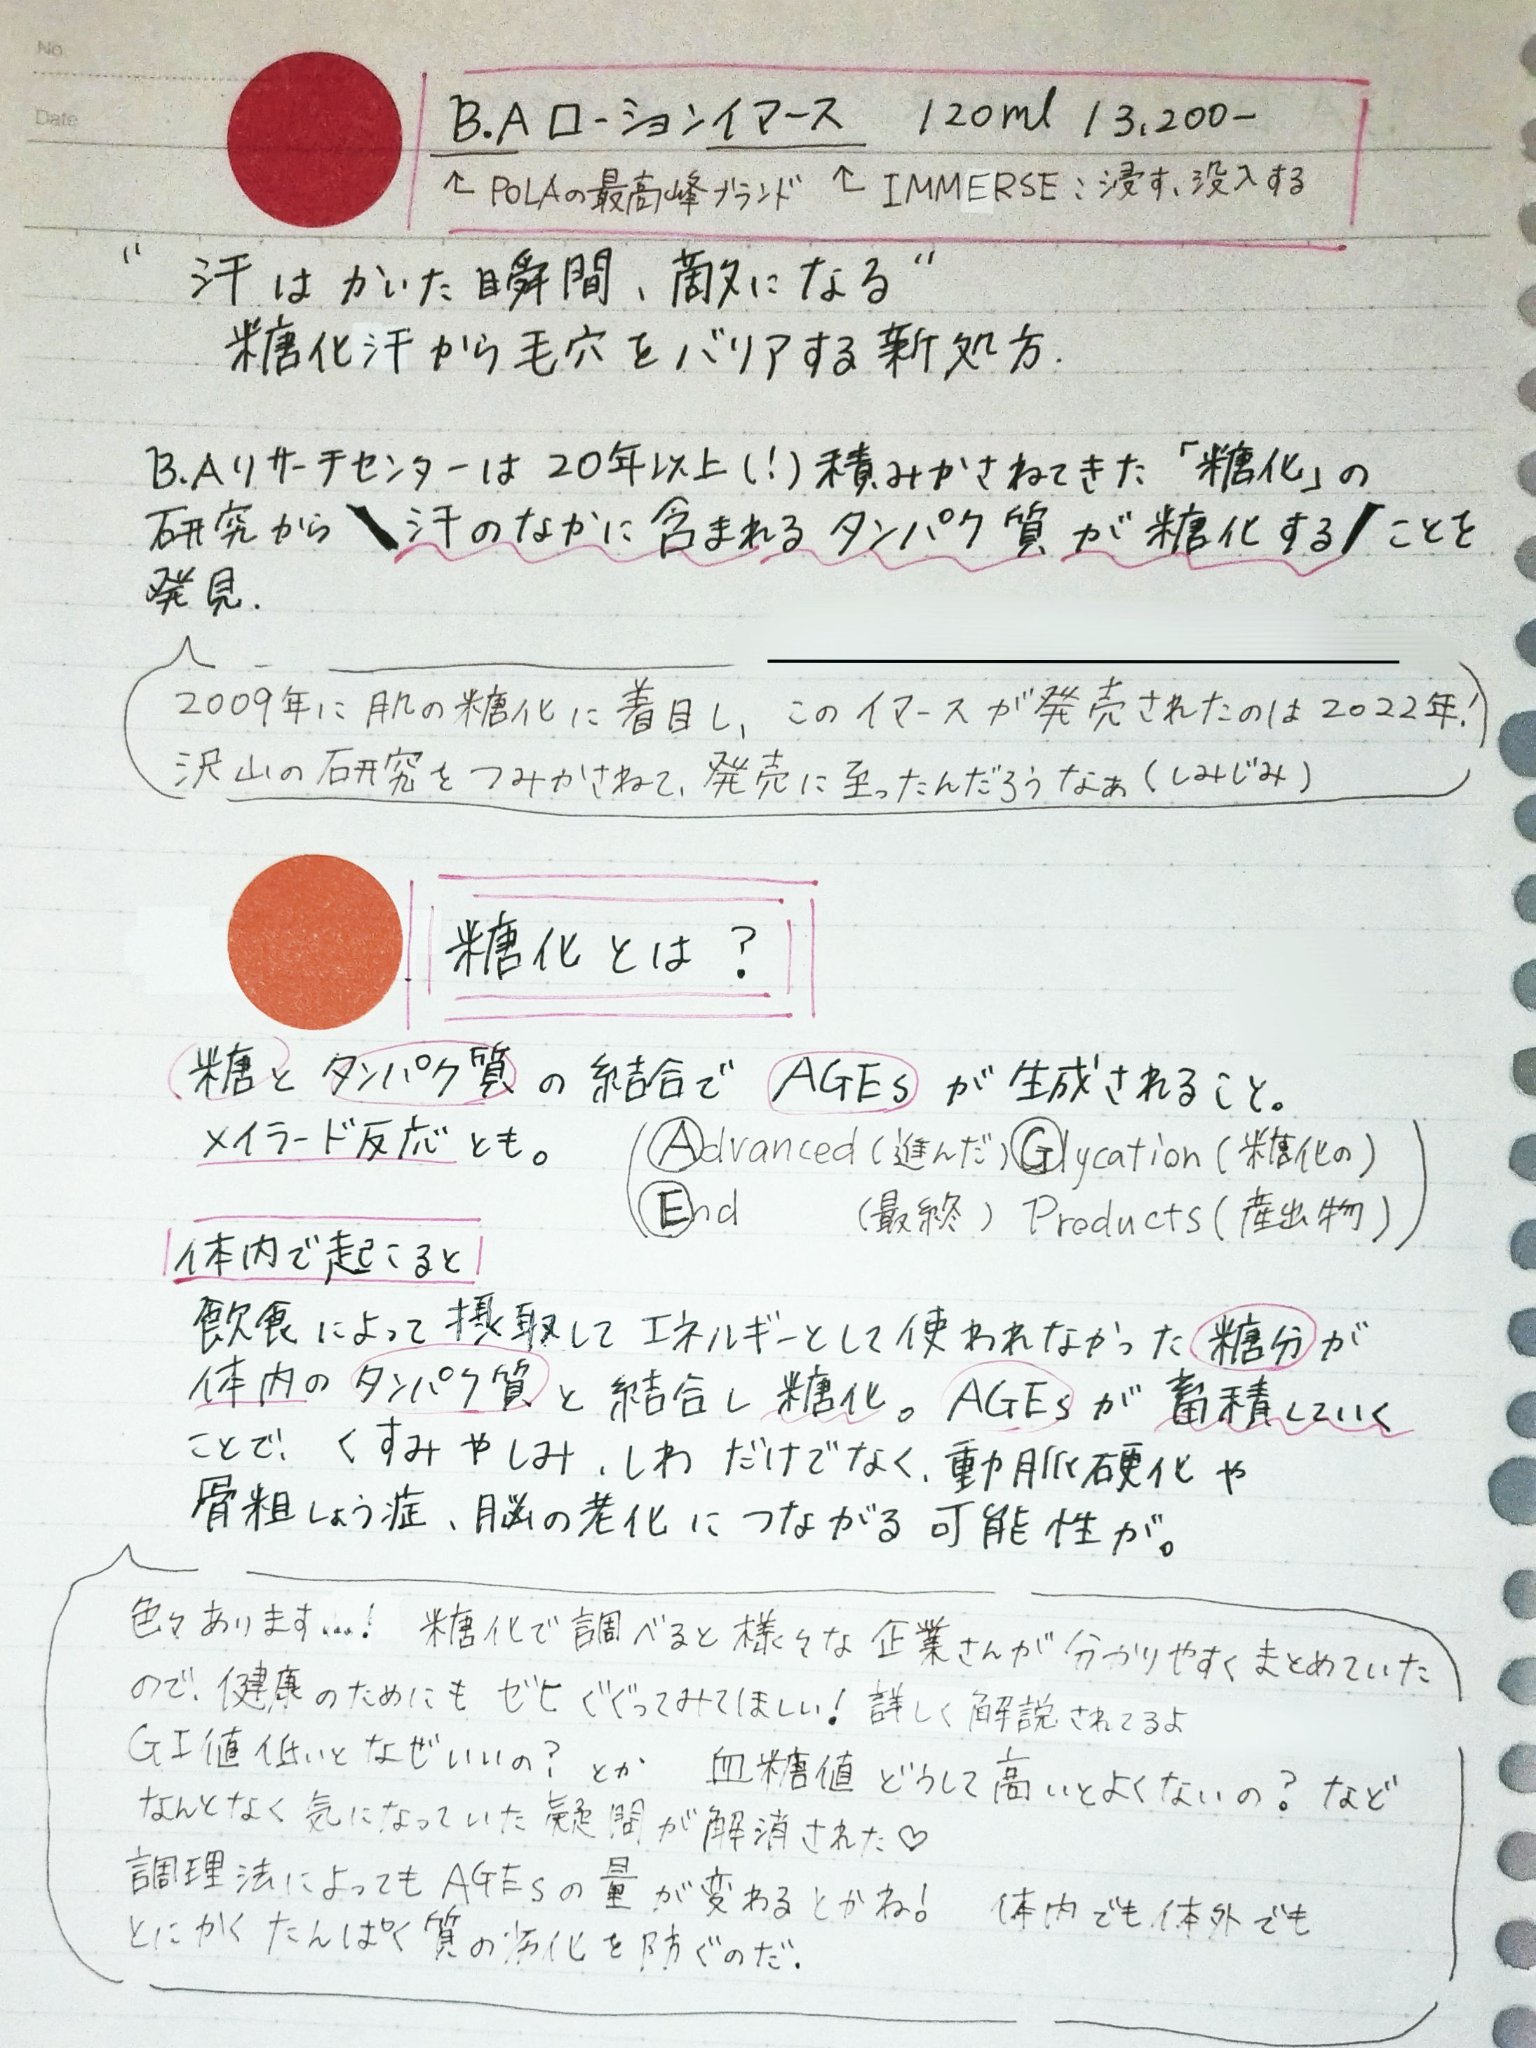 No.
Date
B.A ローションイマース 120ml 13,200-
↑ POLAの最高峰ブランド ↑ IMMERSE：浸す、没入する
"汗はかいた瞬間、敵になる"
糖化汗から毛穴をバリアする新処方.
B.Aリサーチセンターは20年以上(!)積みかさねてきた「糖化」の
研究から \汗のなかに含まれるタンパク質が糖化する/ ことを
発見.
2009年に肌の糖化に着目し、このイマースが発売されたのは2022年!
沢山の研究をつみかさねて、発売に至ったんだろうなぁ(しみじみ)
糖化とは?
糖とタンパク質の結合でAGEsが生成されること。
メイラード反応とも。
(Advanced(進んだ)Glycation(糖化の)
End (最終) Products(産出物))
体内で起こること
飲食によって摂取してエネルギーとして使われなかった糖分が
体内のタンパク質と結合し糖化。AGEsが蓄積していく
ことで、くすみやしみ、しわだけでなく、動脈硬化や
骨粗しょう症、脳の老化につながる可能性が。
色々あります...! 糖化で調べると様々な企業さんが分かりやすくまとめていた
ので、健康のためにもゼヒぐぐってみてほしい! 詳しく解説されてるよ
GI値低いとなぜいいの? とか 血糖値どうして高いとよくないの? など
なんとなく気になっていた疑問が解消された♡
調理法によってもAGEsの量が変わるとかね! 体内でも体外でも
とにかくたんぱく質の劣化を防ぐのだ.